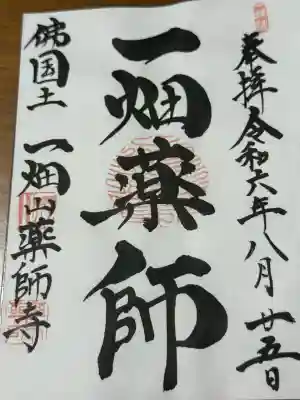 奉拝 令和六年八月廿五日
一畑薬師
佛国土 一畑山薬師寺